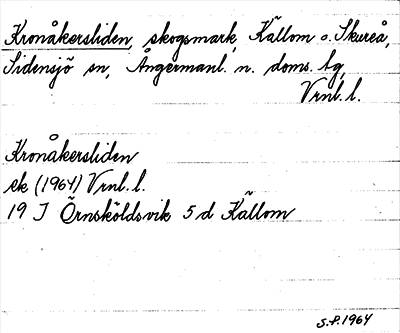 Kronåkersliden, skogsmark, Källom o. Skureå,
Sidensjö sn, Ångermanl. n. doms. tg,
Vrnl. l.
Kronåkersliden
ek (1964) Vrnl. l.
19 J Örnsköldsvik 5 d Källom
S.P. 1964